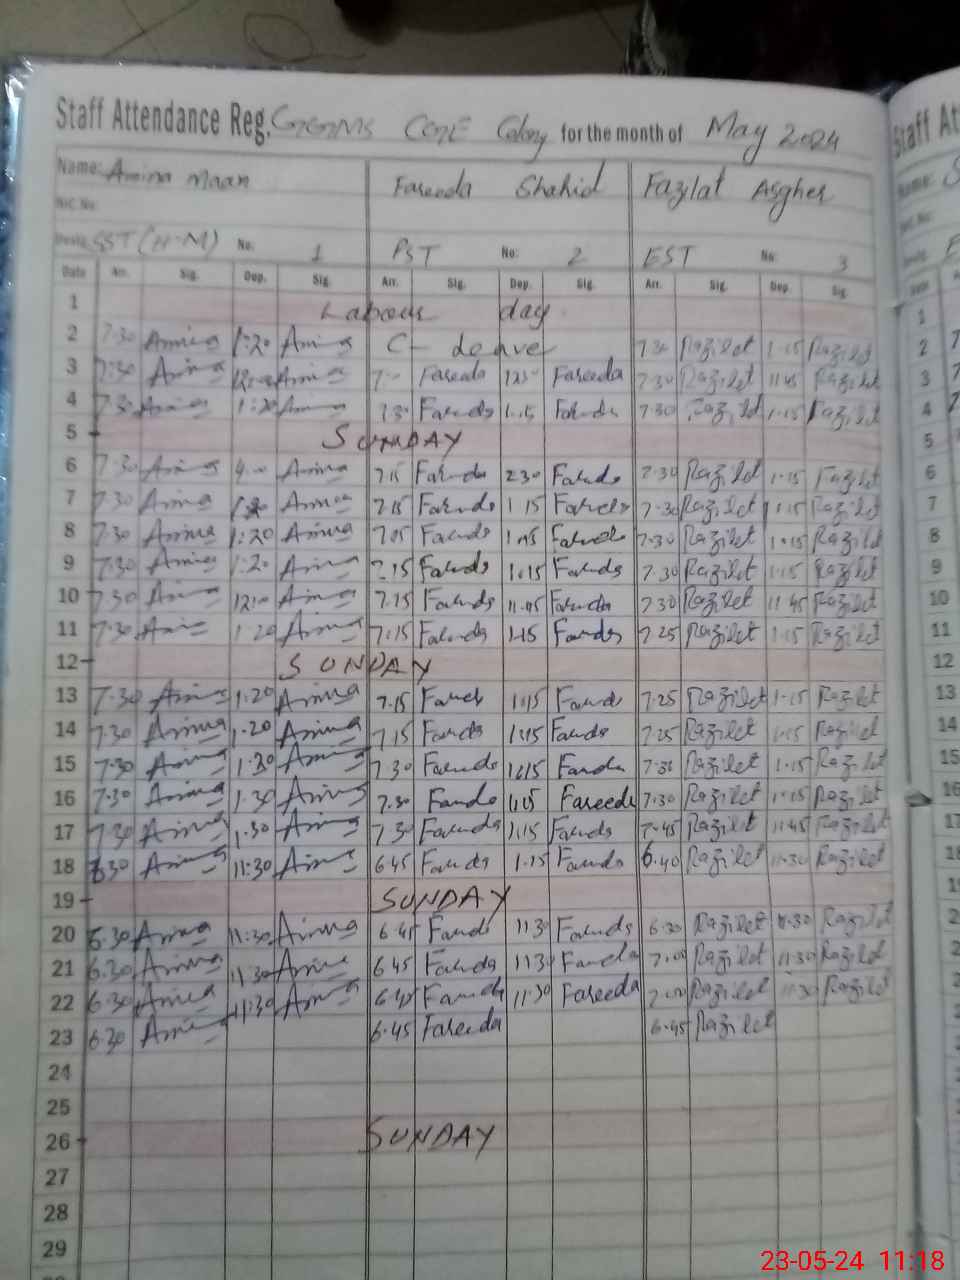 Staff Attendance Reg. GGMS Colony for the month of May 2024
Name: Amina Maan Fareeda Shahid Fazilat Asgher
NIC No
SST (H-M) No: 1 PST No: 2 EST No 3
Date Arr. Sig. Dep. Sig. Arr. Sig. Dep. Sig. Arr. Sig. Dep. Sig
1 Labour day
2 7.30 Amina 1:20 Amina C- Leave 7.30 Razilet 1.15 Razilet
3 7:30 Amina Amina Fareeda Fareeda 7.30 Razilet 11.45 Razilet
4 7.30 Amina 1:20 Amina 7.30 Fareeda 1.15 Fareeda 7.30 Razilet 1.15 Razilet
5 SUNDAY
6 7.30 Amina 4.00 Amina 7.15 Fareeda 2.30 Fareeda 7.30 Razilet 1.15 Razilet
7 7.30 Amina Amina 7.15 Fareeda 1.15 Fareeda 7.30 Razilet 1.15 Razilet
8 7.30 Amina 1:20 Amina Fareeda Fareeda 7.30 Razilet 1.15 Razilet
9 7.30 Amina 1:20 Amina 7.15 Fareeda 1.15 Fareeda 7.30 Razilet 1.15 Razilet
10 7.30 Amina Amina 7.15 Fareeda 11.45 Fareeda 7.30 Razilet 11.45 Razilet
11 7.30 Amina 1.20 Amina 7.15 Fareeda 1.15 Fareeda 7.25 Razilet 1.15 Razilet
12 SUNDAY
13 7.30 Amina 1:20 Amina 7.15 Fareeda 1.15 Fareeda 7.25 Razilet 1.15 Razilet
14 7.30 Amina 1.20 Amina 7.15 Fareeda Fareeda 7.25 Razilet 1.15 Razilet
15 7.30 Amina 1.30 Amina 7.30 Fareeda 1.15 Fareeda 7.30 Razilet 1.15 Razilet
16 7.30 Amina 1.30 Amina 7.30 Fareeda Fareeda 7.30 Razilet 1.15 Razilet
17 7.30 Amina 1.30 Amina 7.30 Fareeda 1.15 Fareeda 7.45 Razilet 11.45 Razilet
18 6.30 Amina 11:30 Amina 6.45 Fareeda 1.15 Fareeda 6.40 Razilet 11.30 Razilet
19 SUNDAY
20 6.30 Amina 11:30 Amina 6.45 Fareeda 11.30 Fareeda 6.30 Razilet 11.30 Razilet
21 6.30 Amina 11.30 Amina 6.45 Fareeda 11.30 Fareeda 7.00 Razilet 11.30 Razilet
22 6.30 Amina 11.30 Amina 6.45 Fareeda 11.30 Fareeda 7.00 Razilet 11.30 Razilet
23 6.30 Amina 6.45 Fareeda 6.45 Razilet
24
25
26 SUNDAY
27
28
29
23-05-24 11:18